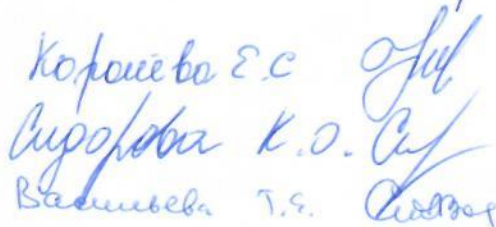 Королева Е.С
Сидорова К.О.
Васильева Т.Е.